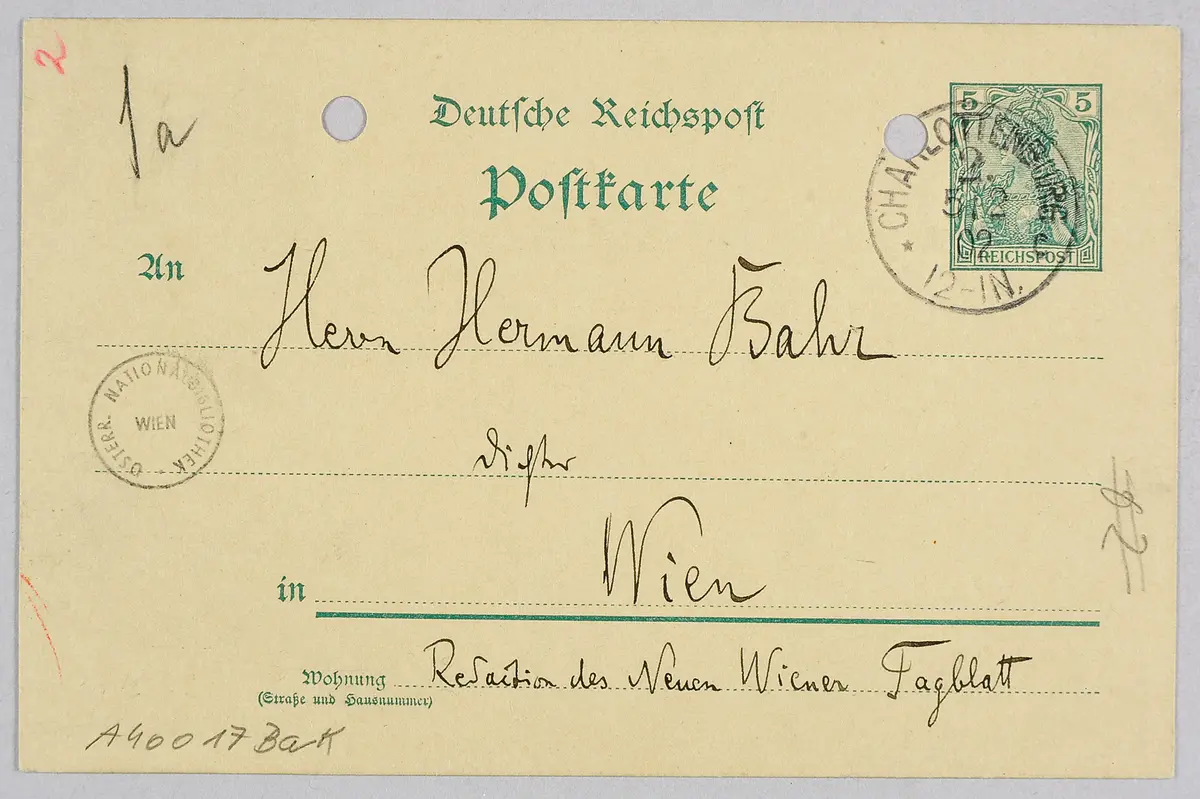 2
1a
Deutsche Reichspost
Postkarte
5 5
REICHSPOST
CHARLOTTENBURG
2.
5.12
02
12-1N.
An Herrn Hermann Bahr
ÖSTERR. NATIONALBIBLIOTHEK
WIEN
Dichter
in Wien
Wohnung Redaction des Neuen Wiener Tagblatt
(Straße und Hausnummer)
A40017BaK